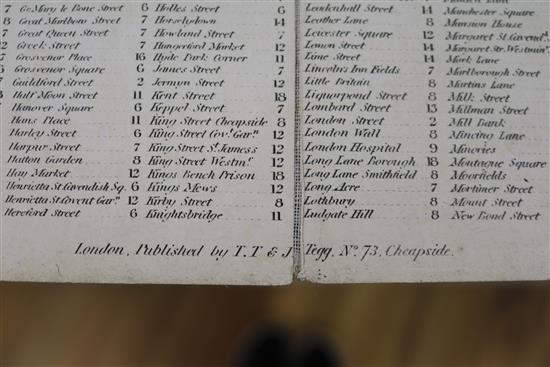 7 Gt. Mary le Bone Street 6 Holles Street 6
8 Great Marlboro Street 7 Horselydown 14
7 Great Queen Street 7 Howland Street 7
12 Greek Street 7 Hungerford Market 12
7 Grosvenor Place 16 Hyde Park Corner 11
6 Grosvenor Square 6 James Street 7
7 Guildford Street 2 Jermyn Street 12
8 Half Moon Street 11 Kent Street 18
Hanover Square 6 Keppel Street 7
Hans Place 11 King Street Cheapside 8
Harley Street 6 King Street Cov.t Gar.n 12
Harpur Street 7 King Street St. James's 12
Hatton Garden 8 King Street Westm.r 12
Hay Market 12 Kings Bench Prison 18
Henrietta St. Cavendish Sq. 6 Kings Mews 12
Henrietta St. Covent Gar.n 12 Kirby Street 8
Hereford Street 6 Knightsbridge 11
Leadenhall Street 14 Manchester Square
Leather Lane 8 Mansion House
Leicester Square 12 Margaret St. Cavend.h
Lemon Street 14 Margaret Str. Westmin.r
Lime Street 14 Mark Lane
Lincolns Inn Fields 7 Marlborough Street
Little Britain 8 Martins Lane
Liquorpond Street 8 Milk Street
Lombard Street 13 Millman Street
London Street 2 Mill Bank
London Wall 8 Mincing Lane
London Hospital 9 Minories
Long Lane Borough 18 Montague Square
Long Lane Smithfield 8 Moorfields
Long Acre 7 Mortimer Street
Lothbury 8 Mount Street
Ludgate Hill 8 New Bond Street
London, Published by T.T & J Tegg, No. 73, Cheapside.